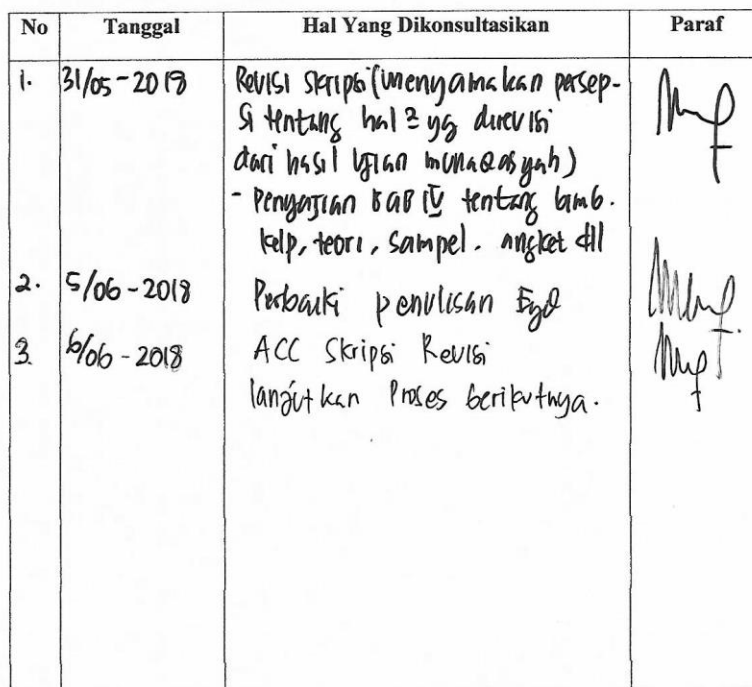 No Tanggal Hal Yang Dikonsultasikan Paraf
1. 31/05-2018 Revisi Skripsi (menyamakan persep-
si tentang hal2 yg direvisi
dari hasil ujian munaqasyah)
- Penyajian BAB IV tentang bimb.
kelp, teori, sampel. angket dll
2. 5/06-2018 Perbaiki penulisan Eyd
3. 6/06-2018 ACC Skripsi Revisi
lanjutkan Proses berikutnya.